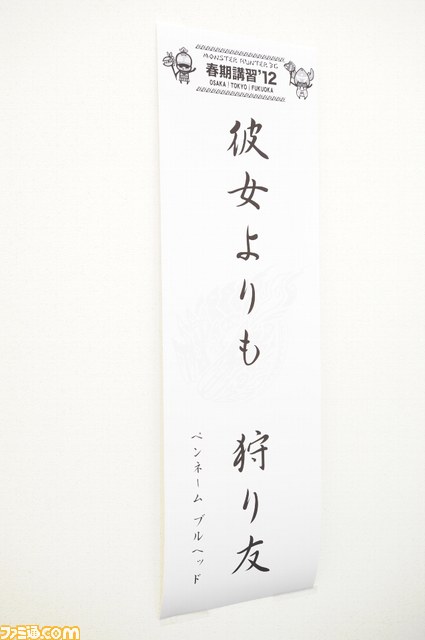 MONSTER HUNTER 3G
春期講習'12
OSAKA | TOKYO | FUKUOKA
彼女よりも 狩り友
ペンネーム ブルヘッド
ファミ通.com